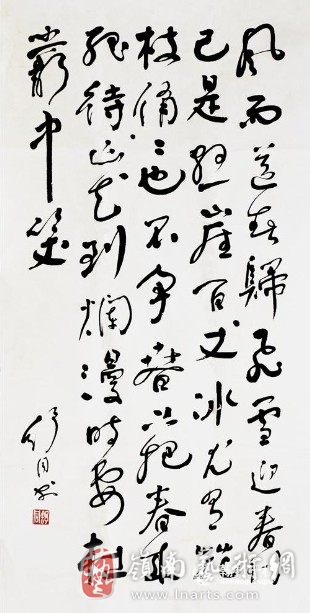 风雨送春歸飛雪迎春到
已是懸崖百丈冰尤有花
枝俏〻也不争春只把春来
报待山花到爛漫時她在
叢中笑
舒同书
嶺南藝術網
Lnarts.com